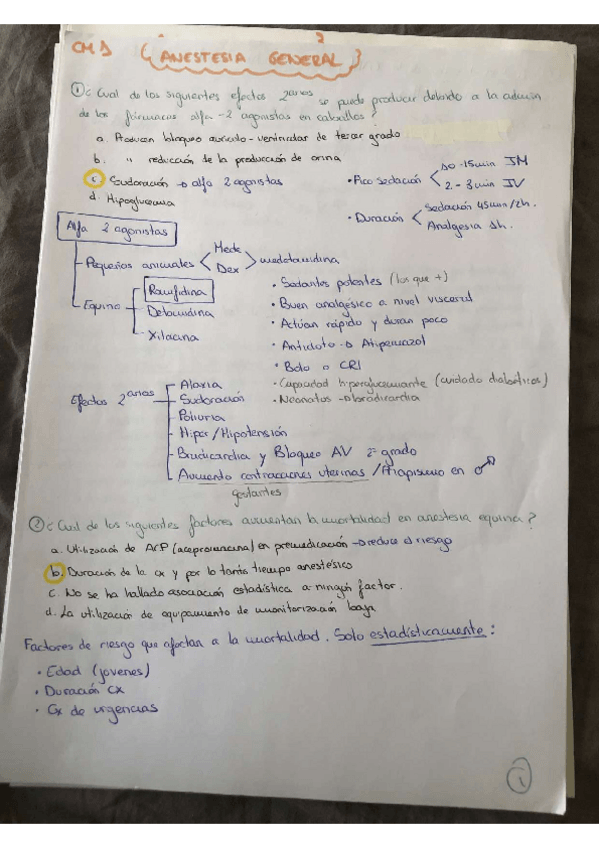 CM1 ANESTESIA GENERAL
① ¿Cual de los siguientes efectos 2arios se puede producir debido a la admón
de los fármacos alfa-2 agonistas en caballos?
a. Producen bloqueo auriculo-ventricular de tercer grado
b. " reducción de la producción de orina
c. Sudoración → alfa 2 agonistas
d. Hipoglucemia
• Pico sedación 10-15min IM
2-3min IV
• Duración Sedación 45min/2h.
Analgesia 1h.
Alfa 2 agonistas
Pequeños animales Mede Dex medetomidina
Equino Romifidina
Detomidina
Xilacina
• Sedantes potentes (los que +)
• Buen analgésico a nivel visceral
• Actúan rápido y duran poco
• Antidoto → Atipemazol
• Bolo o CRI
• Capacidad hiperglucemiante (cuidado diabéticos)
• Neonatos → bradicardia
Efectos 2arios Ataxia
Sudoración
Poliuria
Hiper/Hipotensión
Bradicardia y Bloqueo AV 2º grado
Aumento contracciones uterinas / Priapismo en ♂
gestantes
② ¿Cual de los siguientes factores aumentan la mortalidad en anestesia equina?
a. Utilización de ACP (acepromacina) en premedicación → reduce el riesgo
b. Duración de la cx y por lo tanto tiempo anestésico
c. No se ha hallado asociación estadística a ningún factor.
d. La utilización de equipamiento de monitorización
Factores de riesgo que afectan a la mortalidad. Solo estadísticamente:
• Edad (jovenes)
• Duración cx
• Cx de urgencias
1